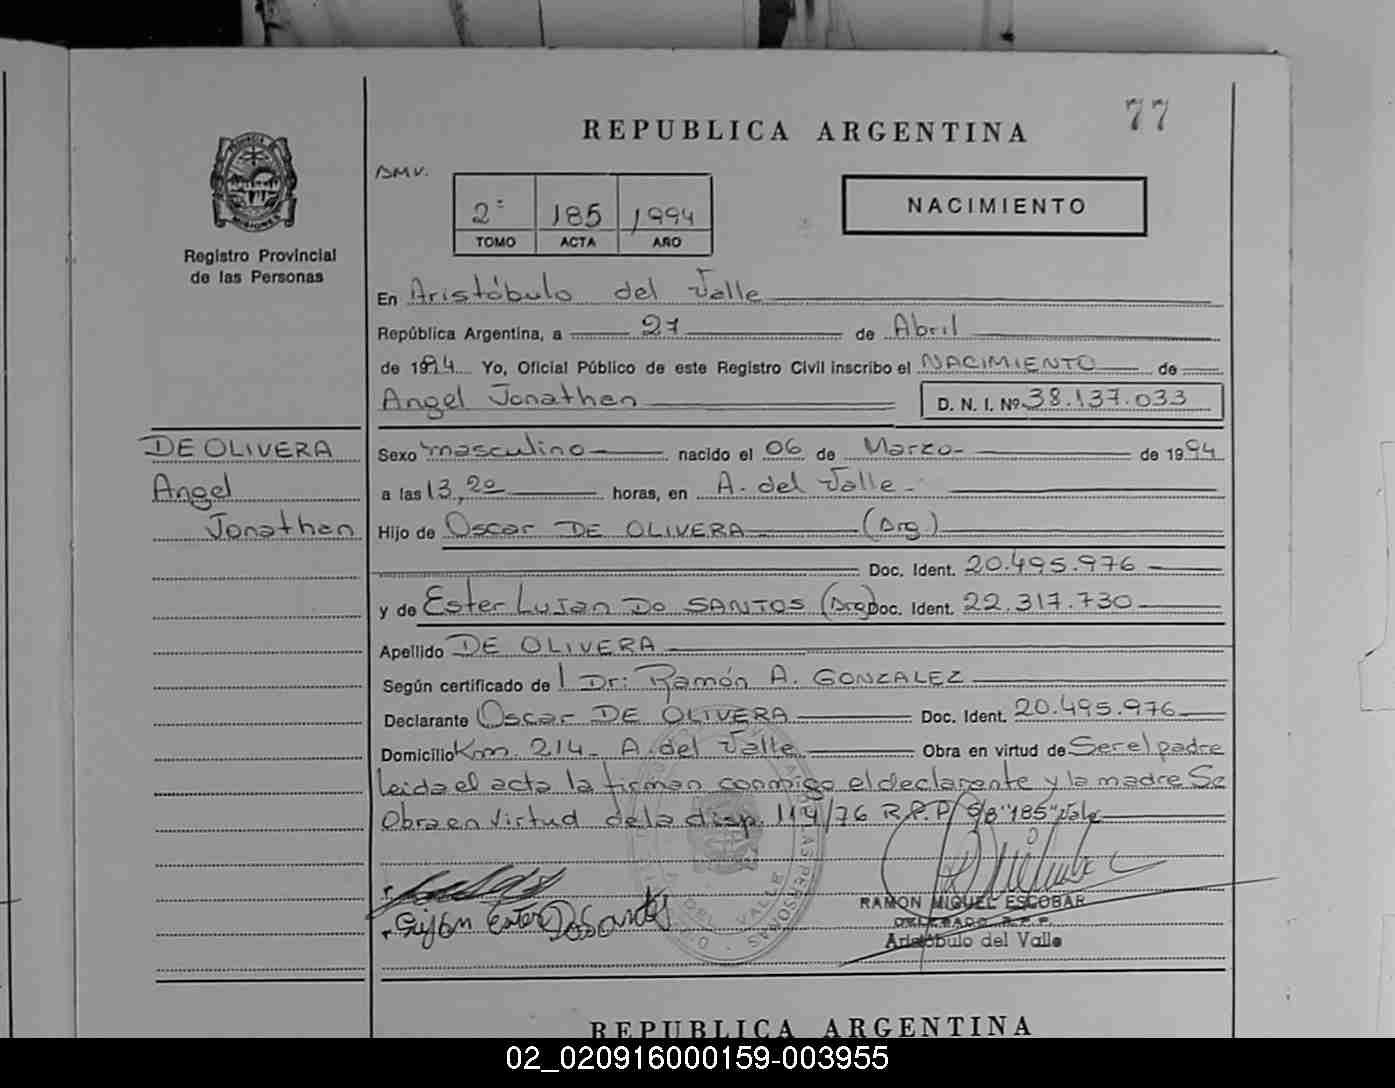 77
REPUBLICA ARGENTINA
BMV.
2º 185 1994
TOMO ACTA AÑO
NACIMIENTO
PROVINCIA DE MISIONES
Registro Provincial
de las Personas
En Aristóbulo del Valle
República Argentina, a 27 de Abril
de 1994 Yo, Oficial Público de este Registro Civil inscribo el NACIMIENTO de
Angel Jonathan
D. N. I. Nº 38.137.033
DE OLIVERA
Angel
Jonathan
Sexo masculino nacido el 06 de Marzo de 1994
a las 13,20 horas, en A. del Valle
Hijo de Oscar DE OLIVERA (Arg)
Doc. Ident. 20.495.976
y de Ester Lujan Do SANTOS (Arg) Doc. Ident. 22.317.730
Apellido DE OLIVERA
Según certificado de l Dr: Ramón A. GONZALEZ
Declarante Oscar DE OLIVERA Doc. Ident. 20.495.976
Domicilio Km. 214 A. del Valle Obra en virtud de Ser el padre
Leida el acta la firman conmigo el declarante y la madre Se
Obra en virtud de la disp. 114/76 R.P.P. S/B "185" Vale
RAMON MIGUEL ESCOBAR
DELEGADO R.P.P.
Aristóbulo del Valle
REPUBLICA ARGENTINA
02_020916000159-003955